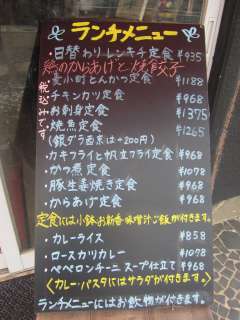 ランチメニュー
・日替わりレンキチ定食 ¥935
鶏のからあげと焼餃子
税込みです
・麦小町とんかつ定食 ¥1188
・チキンカツ定食 ¥968
・お刺身定食 ¥1375
・焼魚定食 ¥1265
(銀ダラ西京は+200円)
・カキフライと帆立フライ定食 ¥968
・かつ煮定食 ¥1078
・豚生姜焼き定食 ¥968
・からあげ定食 ¥968
定食には小鉢お新香・味噌汁ご飯が付きます。
・カレーライス ¥858
・ロースカツカレー ¥1078
・ペペロンチーニスープ仕立て ¥968
〈カレー・パスタにはサラダが付きます〉
ランチメニューにはお飲物が付きます。